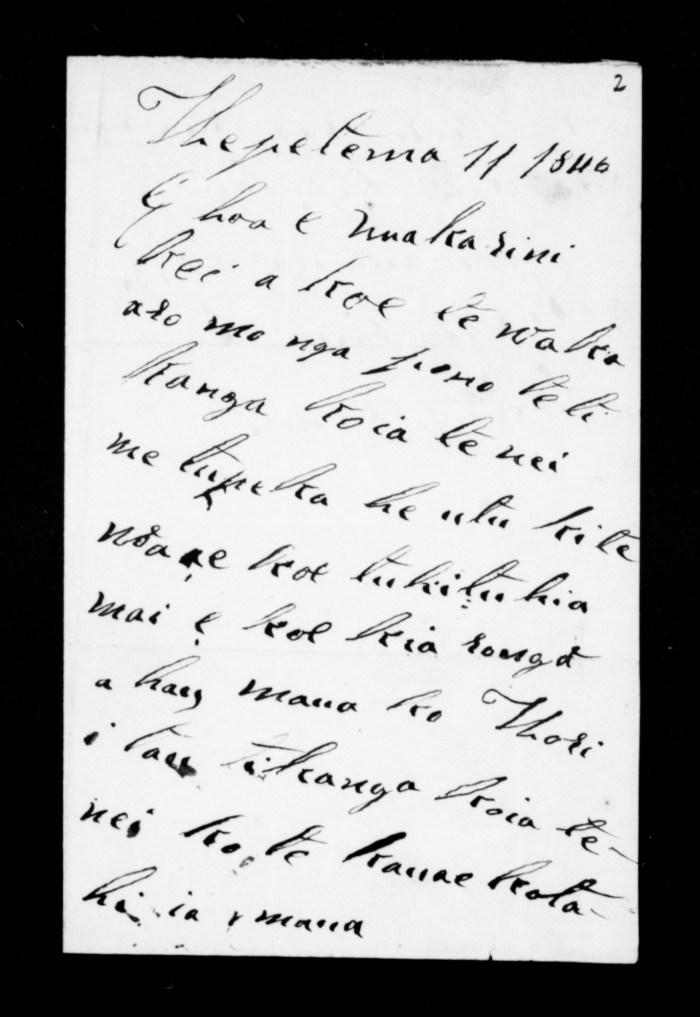 2
Thepetema 11 1846
E hoa e makarini
kei a koe te waka
aro mo nga pono te ti
kanga koia te nei
me tupeka he utu kite
koe tuhituhia
mai e koe kia ronga
a hau maua ko Thori
i tau tikanga koia te-
nei ko te kanae kota-
hi ia maua